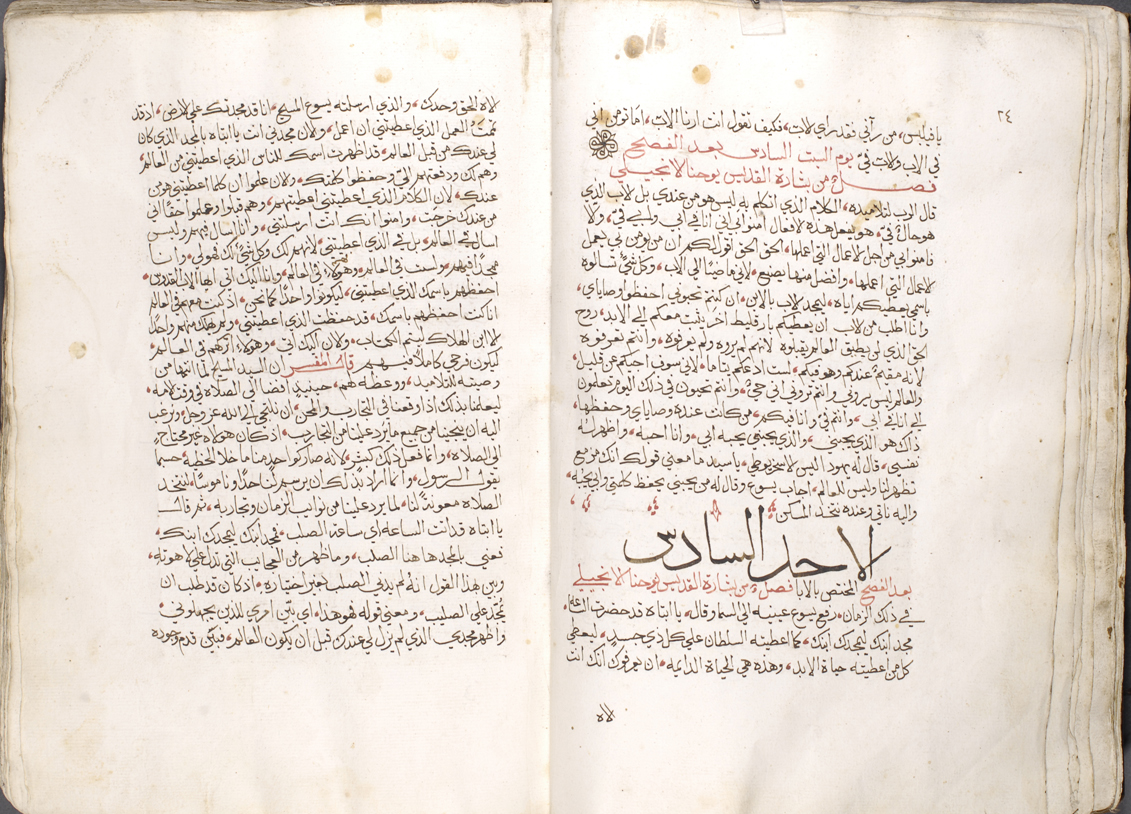 ٢٤
يا فيلبس، من رآني فقد راي الاب، فكيف تقول انت ارنا الاب، اما تومن اني
في الاب والاب فيّ يوم السبت السادس بعد الفصح
فصل من بشارة القديس يوحنا الانجيلي
قال الرب لتلاميذه، الكلام الذي اتكلم به ليس هو من عندي بل الاب الذي
هو حالّ فيّ، هو يفعل هذه الافعال امنوا بي اني انا في ابي وابي فيّ، والا
فامنوا بي من اجل الاعمال التي اعملها، الحق الحق اقول لكم ان من يومن بي يعمل
الاعمال التي اعملها، وافضل منها يصنع، لاني ماضيًا الي الاب، وكل شيٍ تسالوه
باسمي اعطيكم اياه، ليمجد الاب بالابن، ان كنتم تحبوني احفظوا وصاياي،
وانا اطلب من الاب ان يعطيكم بارقليط اخر يثبت معكم الي الابد، روح
الحق الذي لن يطيق العالم يقبلوه لانهم لم يروه ولم يعرفوه، وانتم تعرفوه
لانه مقيمٌ عندكم وهو فيكم، لست ادعكم يتاما، لاني سوف اجيكم عن قليل،
والعالم ليس يروني وانتم تروني اني حيٌ، وانتم تحيون في ذلك اليوم تعلمون
اني انا في ابي، وانتم فيّ وانا فيكم، من كانت عنده وصاياي وحفظها،
ذاك هو الذي يحبني، والذي يحبني يحبه ابي، وانا احبه، واظهر له
نفسي، قال له يهودا ليس الاسخريوطي، يا سيد ما معني قولك انك مزمع
تظهر لنا وليس للعالم، اجاب يسوع وقال له من يحبني يحفظ كلمتي وابي يحبه
واليه ناتي وعنده نتخذ المسكن
الاحد السادس
بعد الفصح المختص بالابا فصل من بشارة القديس يوحنا الانجيلي
في ذلك الزمان، رفع يسوع عينيه الي السما وقال، يا ابتاه قد حضرت الساعه
مجد ابنك ليمجدك ابنك، كما اعطيته السلطان علي كل ذي جسد، ليعطي
كل من اعطيته حياة الابد، وهذه هي الحياة الدايمه، ان يعرفوك انك انت
الاه
الاه الحق وحدك، والذي ارسلته يسوع المسيح، انا قد مجدتك علي الارض، اذ قد
تممتُ العمل الذي اعطيتني ان اعمل، والان مجدني انت يا ابتاه بالمجد الذي كان
لي عندك من قبل العالم، قد اظهرت اسمك للناس الذي اعطيتني من العالم،
وهم لك ودفعتهم اليّ وحفظوا كلمتك، والان علموا ان كلما اعطيتني هو من
عندك، لان الكلام الذي اعطيتني اعطيتهم، وهم قبلوا وعلموا حقًا اني
من عندك خرجت، وامنوا انك انت ارسلتني، وانا اسال فيهم وليس
اسال في العالم، بل في الذي اعطيتني، لانهم لك وكل شيٍ لك فهو لي، وانا
ممجدًا فيهم، ولست في العالم، وهولاء في العالم، وانا اليك اتي ايها الاب القدوس،
احفظهم باسمك الذي اعطيتني، ليكونوا واحدًا كما نحن، اذ كنت معهم في العالم
انا كنت احفظهم باسمك، قد حفظت الذي اعطيتني، ولم يهلك منهم واحدًا
الا ابن الهلاك ليتم الكتاب، والان اليك اتي، وهولاء اتركهم في العالم
ليكون فرحي كاملًا فيهم قال المفسر ان السيد المسيح لما انتها من
وصيته التلاميذ، ووعظه لهم، حينيذٍ افضا الي الصلاة في وقت الامه،
ليعلمنا بذلك اذا وقعنا في التجارب والمحن، ان نلتجي الي الله عز وجل، ونرغب
اليه ان ينجينا من جميع ما يرد علينا من التجارب، اذ كان هو لاه غير محتاج،
الي الصلاه، وانما فعل ذلك لانه صار كواحد منا ما خلا الخطية، حسبما
يقول الرسول، وانما اراد بذلك ان يرسم لنا حدًا وناموسًا، لنتخذ
الصلاه معونة لنا، مما يرد علينا من نوايب الزمان وتجاربه، ثم قال
يا ابتاه قد أتت الساعه اي ساعة الصلب، فمجد ابنك ليمجدك ابنك،
فعني بالمجد هاهنا الصلب، وما ظهر من العجايب التي تدل علي لاهوته،
وبين بهذا القول انه لم يدني الصلب بغير اختياره، اذ كان قد طلب ان
يمجّد علي الصليب، ومعني قوله فهو هذا، اي بيّن امري للذين يجهلوني
واظهر مجدي الذي لم يزل لي عندك قبل ان يكون العالم، فبيّن قدم وجوده